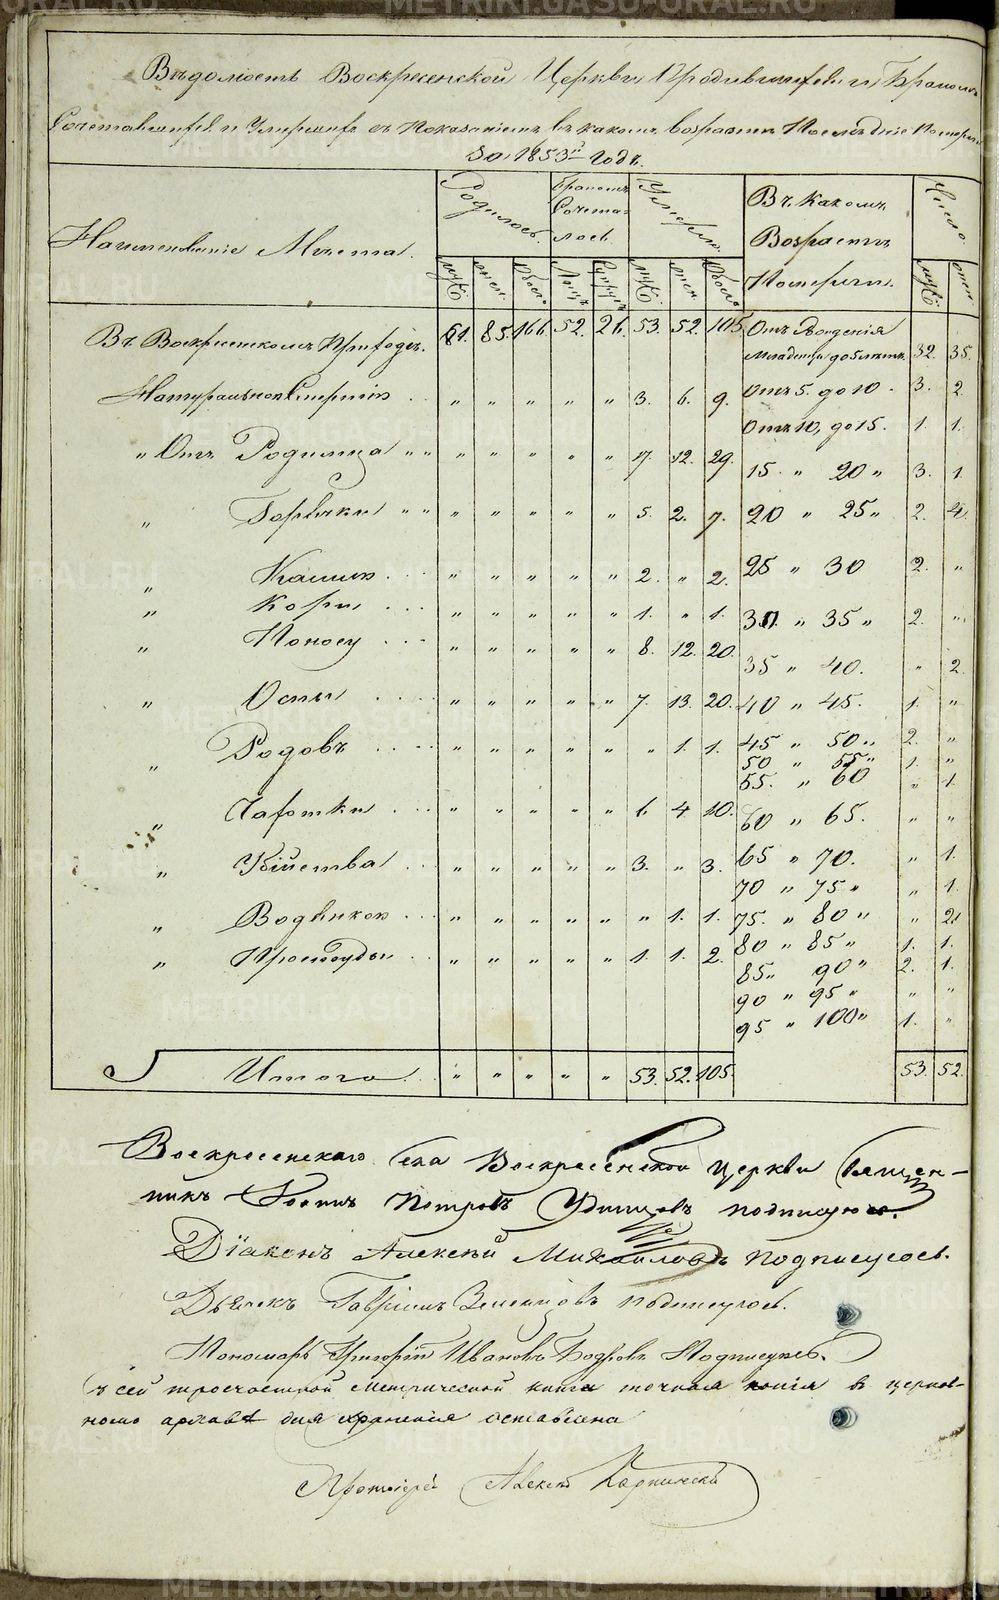 Ведомость Воскресенской Церкви Родившихся, Бракомъ
Сочетавшихся и Умершихъ съ Показаніемъ въ какомъ возрасте Последніе Померли
За 1853й годъ.
Наименованіе Места.
Родилось.
Бракомъ Сочеталось.
Умерло.
Въ Какомъ Возрасте Померли.
Число.
муж. жен. Обоего муж. жен. Обоего
муж. жен.
Въ Воскресенскомъ Приходе. 81. 85. 166. 52. 26. 53. 52. 105. Отъ Рожденія
Младенцы до 5 летъ. 32. 35.
Натуральной Смертію „ „ „ „ „ 3. 6. 9. Отъ 5. до 10. 3. 2.
Отъ 10, до 15. 1. 1.
„ Отъ Родимца „ „ „ „ „ „ „ 17. 12. 29. 15. „ 20 „ 3. 1.
„ Горячки „ „ „ „ „ „ „ 5. 2. 7. 20 „ 25 „ 2. 4.
„ Кашля. „ „ „ „ „ 2. „ 2. 25 „ 30 2. „
„ Кори „ „ „ „ „ 1. „ 1. 30. „ 35 „ 2. „
„ Поносу „ „ „ „ „ 8. 12. 20. 35 „ 40. „ 2.
„ Оспы „ „ „ „ „ 7. 13. 20. 40 „ 45. 1. „
„ Родовъ „ „ „ „ „ „ 1. 1. 45 „ 50 „ 2. „
50 „ 55 „ 1. „
55. „ 60 „ 1.
„ Чахотки „ „ „ „ „ 6 4. 10. 60 „ 65. „ „
„ Убійства „ „ „ „ „ 3. „ 3. 65 „ 70. „ 1.
70 „ 75 „ „ 1.
„ Водянкой „ „ „ „ „ „ 1. 1. 75. „ 80 „ „ 2.
„ Простуды „ „ „ „ „ 1. 1. 2. 80 „ 85 „ 1. 1.
85 „ 90 „ 2. 1.
90 „ 95 „ „ „
95 „ 100 „ 1. „
Итого „ „ „ „ „ 53. 52. 105. 53. 52.
Воскресенскаго села Воскресенской церкви Священ-
никъ Петровъ Удинцовъ подписуюсь.
Діаконъ Алексей Михайловъ подписуюсь.
Дьячекъ Гавріилъ подписуюсь.
Пономарь Григорій Ивановъ Бодровъ Подписуюсь.
Съ сей троечастной метрической книги точная копія в церков-
номъ архиве для храненія оставлена
Протоіерей Алексей Карпинскій
METRIKI.GASU-URAL.RU